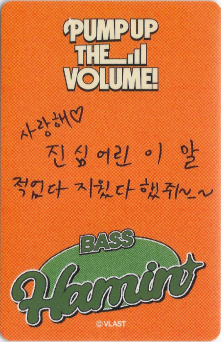 PUMP UP
THE
VOLUME!
사랑해♡
진심어린 이 말
적었다 지웠다 했줘~~
BASS
Hamin
©VLAST